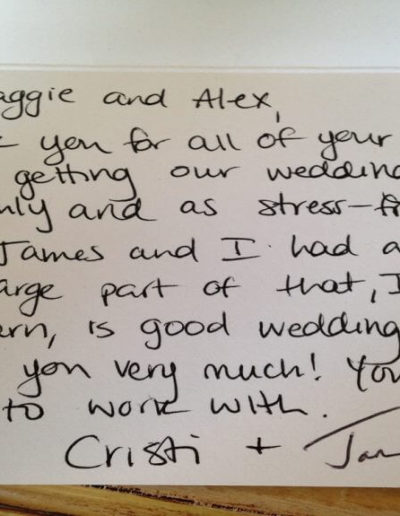 aggie and Alex,
you for all of your
getting our wedding
nly and as stress-
James and I had a
arge part of that, I
ern, is good wedding
you very much! You
to work with.
Cristi + Jam